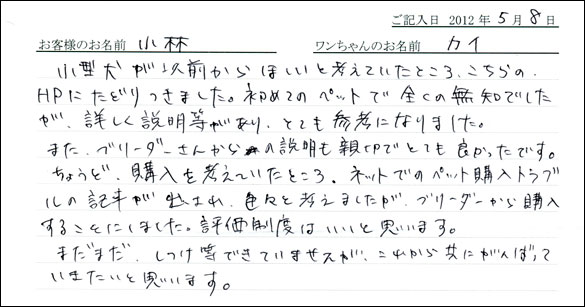 ご記入日 2012年5月8日
お客様のお名前 小林 ワンちゃんのお名前 カイ
小型犬が以前からほしいと考えていたところ、こちらの、
HPにたどりつきました。初めてのペットで全くの無知でした
が、詳しく説明等があり、とても参考になりました。
また、ブリーダーさんからの説明も親切でとても良かったです。
ちょうど、購入を考えていたところ、ネットでのペット購入トラブ
ルの記事が出され、色々と考えましたが、ブリーダーから購入
することにしました。評価制度はいいと思います。
まだまだ、しつけ等できていませんが、これから共にがんばって
いきたいと思います。